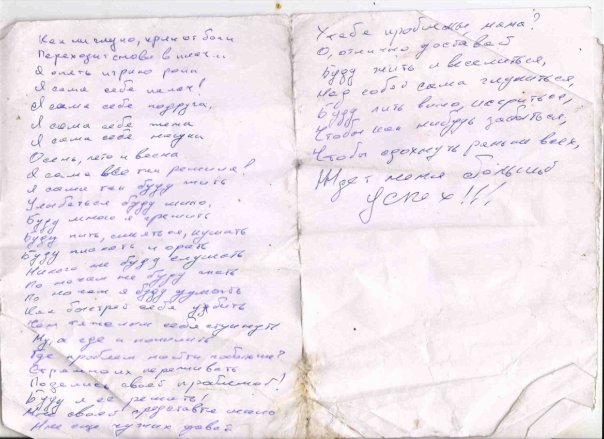 Как ни глупо, крик от боли
Переходит снова в плач...
Я опять играю роли
Я сама себе палач!
Я сама себе подруга,
Я сама себе жена
Я сама себе
Осень, лето и весна
Я сама всё так решила!
Я сама так буду жить
Улыбаться буду мило,
Буду много я грешить
Буду пить, смеяться, кушать
Буду плакать и орать
Никого не буду слушать
По ночам не буду спать
По ночам я буду думать
Как быстрей себя убить
Чем тяжёлым себя стукнуть
Ну, а где и
Где проблем найти побольше?
их переживать
Поделись своей проблемой!
Буду я её решать!
Мне своей представьте мало
Мне ещё чужих давай
У тебя проблемы, мама?
О, отлично доставай
Буду жить и веселиться,
Над собой сама глумиться,
Буду пить вино,
Чтобы как нибудь забыться,
Чтобы сдохнуть раньше всех,
Ждет меня большой
успех!!!